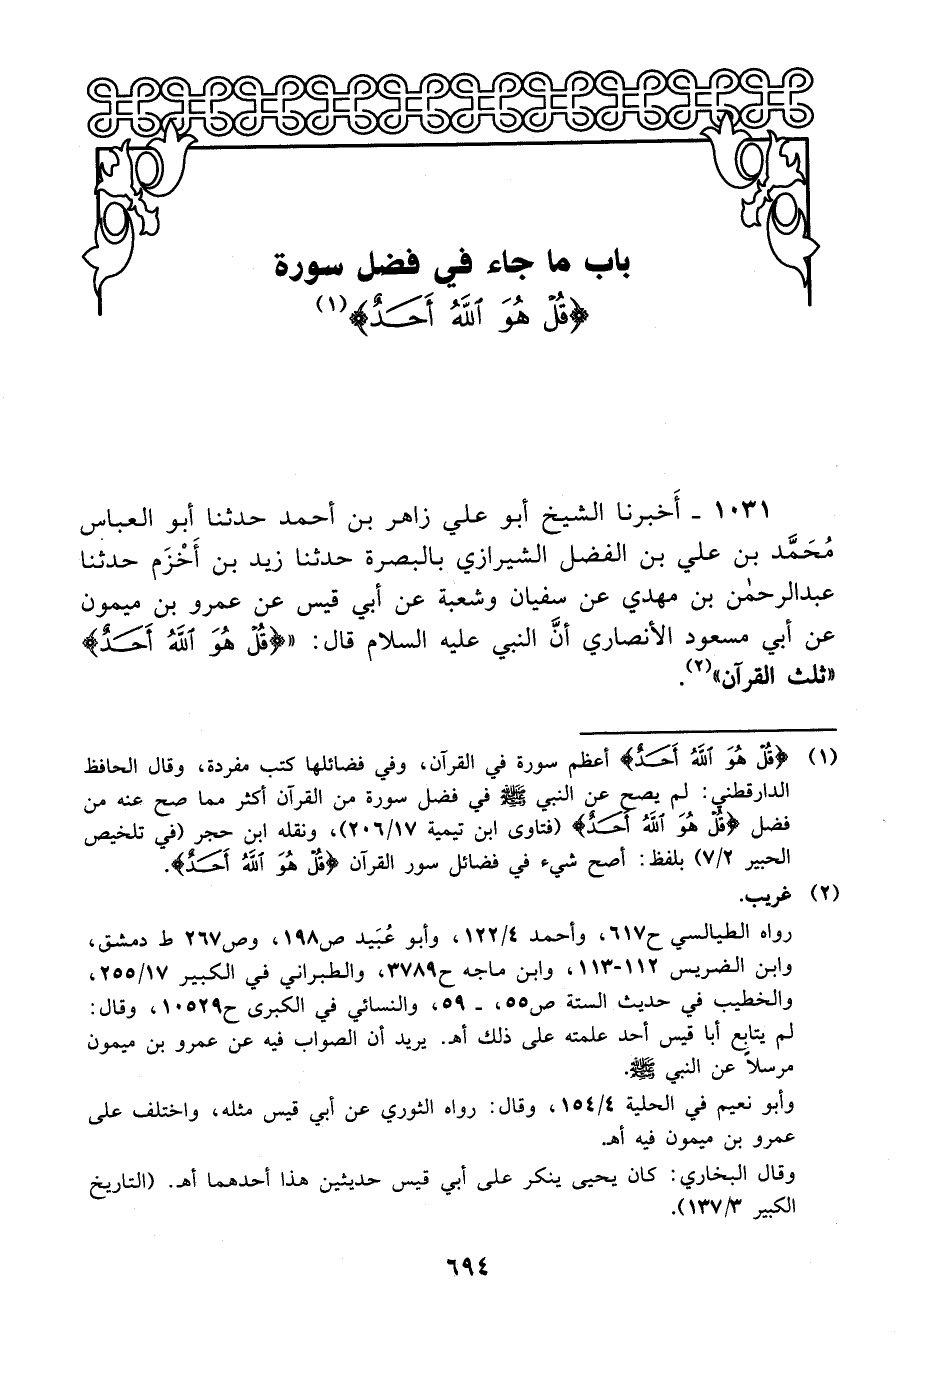 باب ما جاء في فضل سورة
﴿قُلْ هُوَ ٱللَّهُ أَحَـدٌ﴾(١)
١٠٣١ ـ أَخبرنا الشيخ أبو علي زاهر بن أحمد حدثنا أبو العباس
مُحَمَّد بن علي بن الفضل الشيرازي بالبصرة حدثنا زيد بن أَخْزَم حدثنا
عبدالرحمٰن بن مهدي عن سفيان وشعبة عن أبي قيس عن عمرو بن ميمون
عن أبي مسعود الأنصاري أنَّ النبي عليه السلام قال: «﴿قُلْ هُوَ ٱللَّهُ أَحَـدٌ﴾
«ثلث القرآن»(٢).
(١) ﴿قُلْ هُوَ ٱللَّهُ أَحَـدٌ﴾ أعظم سورة في القرآن، وفي فضائلها كتب مفردة، وقال الحافظ
الدارقطني: لم يصح عن النبي ﷺ في فضل سورة من القرآن أكثر مما صح عنه من
فضل ﴿قُلْ هُوَ ٱللَّهُ أَحَـدٌ﴾ (فتاوى ابن تيمية ٢٠٦/١٧)، ونقله ابن حجر (في تلخيص
الحبير ٧/٢) بلفظ: أصح شيء في فضائل سور القرآن ﴿قُلْ هُوَ ٱللَّهُ أَحَـدٌ﴾.
(٢) غريب.
رواه الطيالسي ح٦١٧، وأحمد ١٢٢/٤، وأبو عُبَيد ص١٩٨، وص٢٦٧ ط دمشق،
وابن الضريس ١١٢-١١٣، وابن ماجه ح٣٧٨٩، والطبراني في الكبير ٢٥٥/١٧،
والخطيب في حديث الستة ص٥٥، ـ ٥٩، والنسائي في الكبرى ح١٠٥٢٩، وقال:
لم يتابع أبا قيس أحد علمته على ذلك أهـ. يريد أن الصواب فيه عن عمرو بن ميمون
مرسلاً عن النبي ﷺ.
وأبو نعيم في الحلية ١٥٤/٤، وقال: رواه الثوري عن أبي قيس مثله، واختلف على
عمرو بن ميمون فيه أهـ.
وقال البخاري: كان يحيى ينكر على أبي قيس حديثين هذا أحدهما أهـ. (التاريخ
الكبير ١٣٧/٣).
٦٩٤